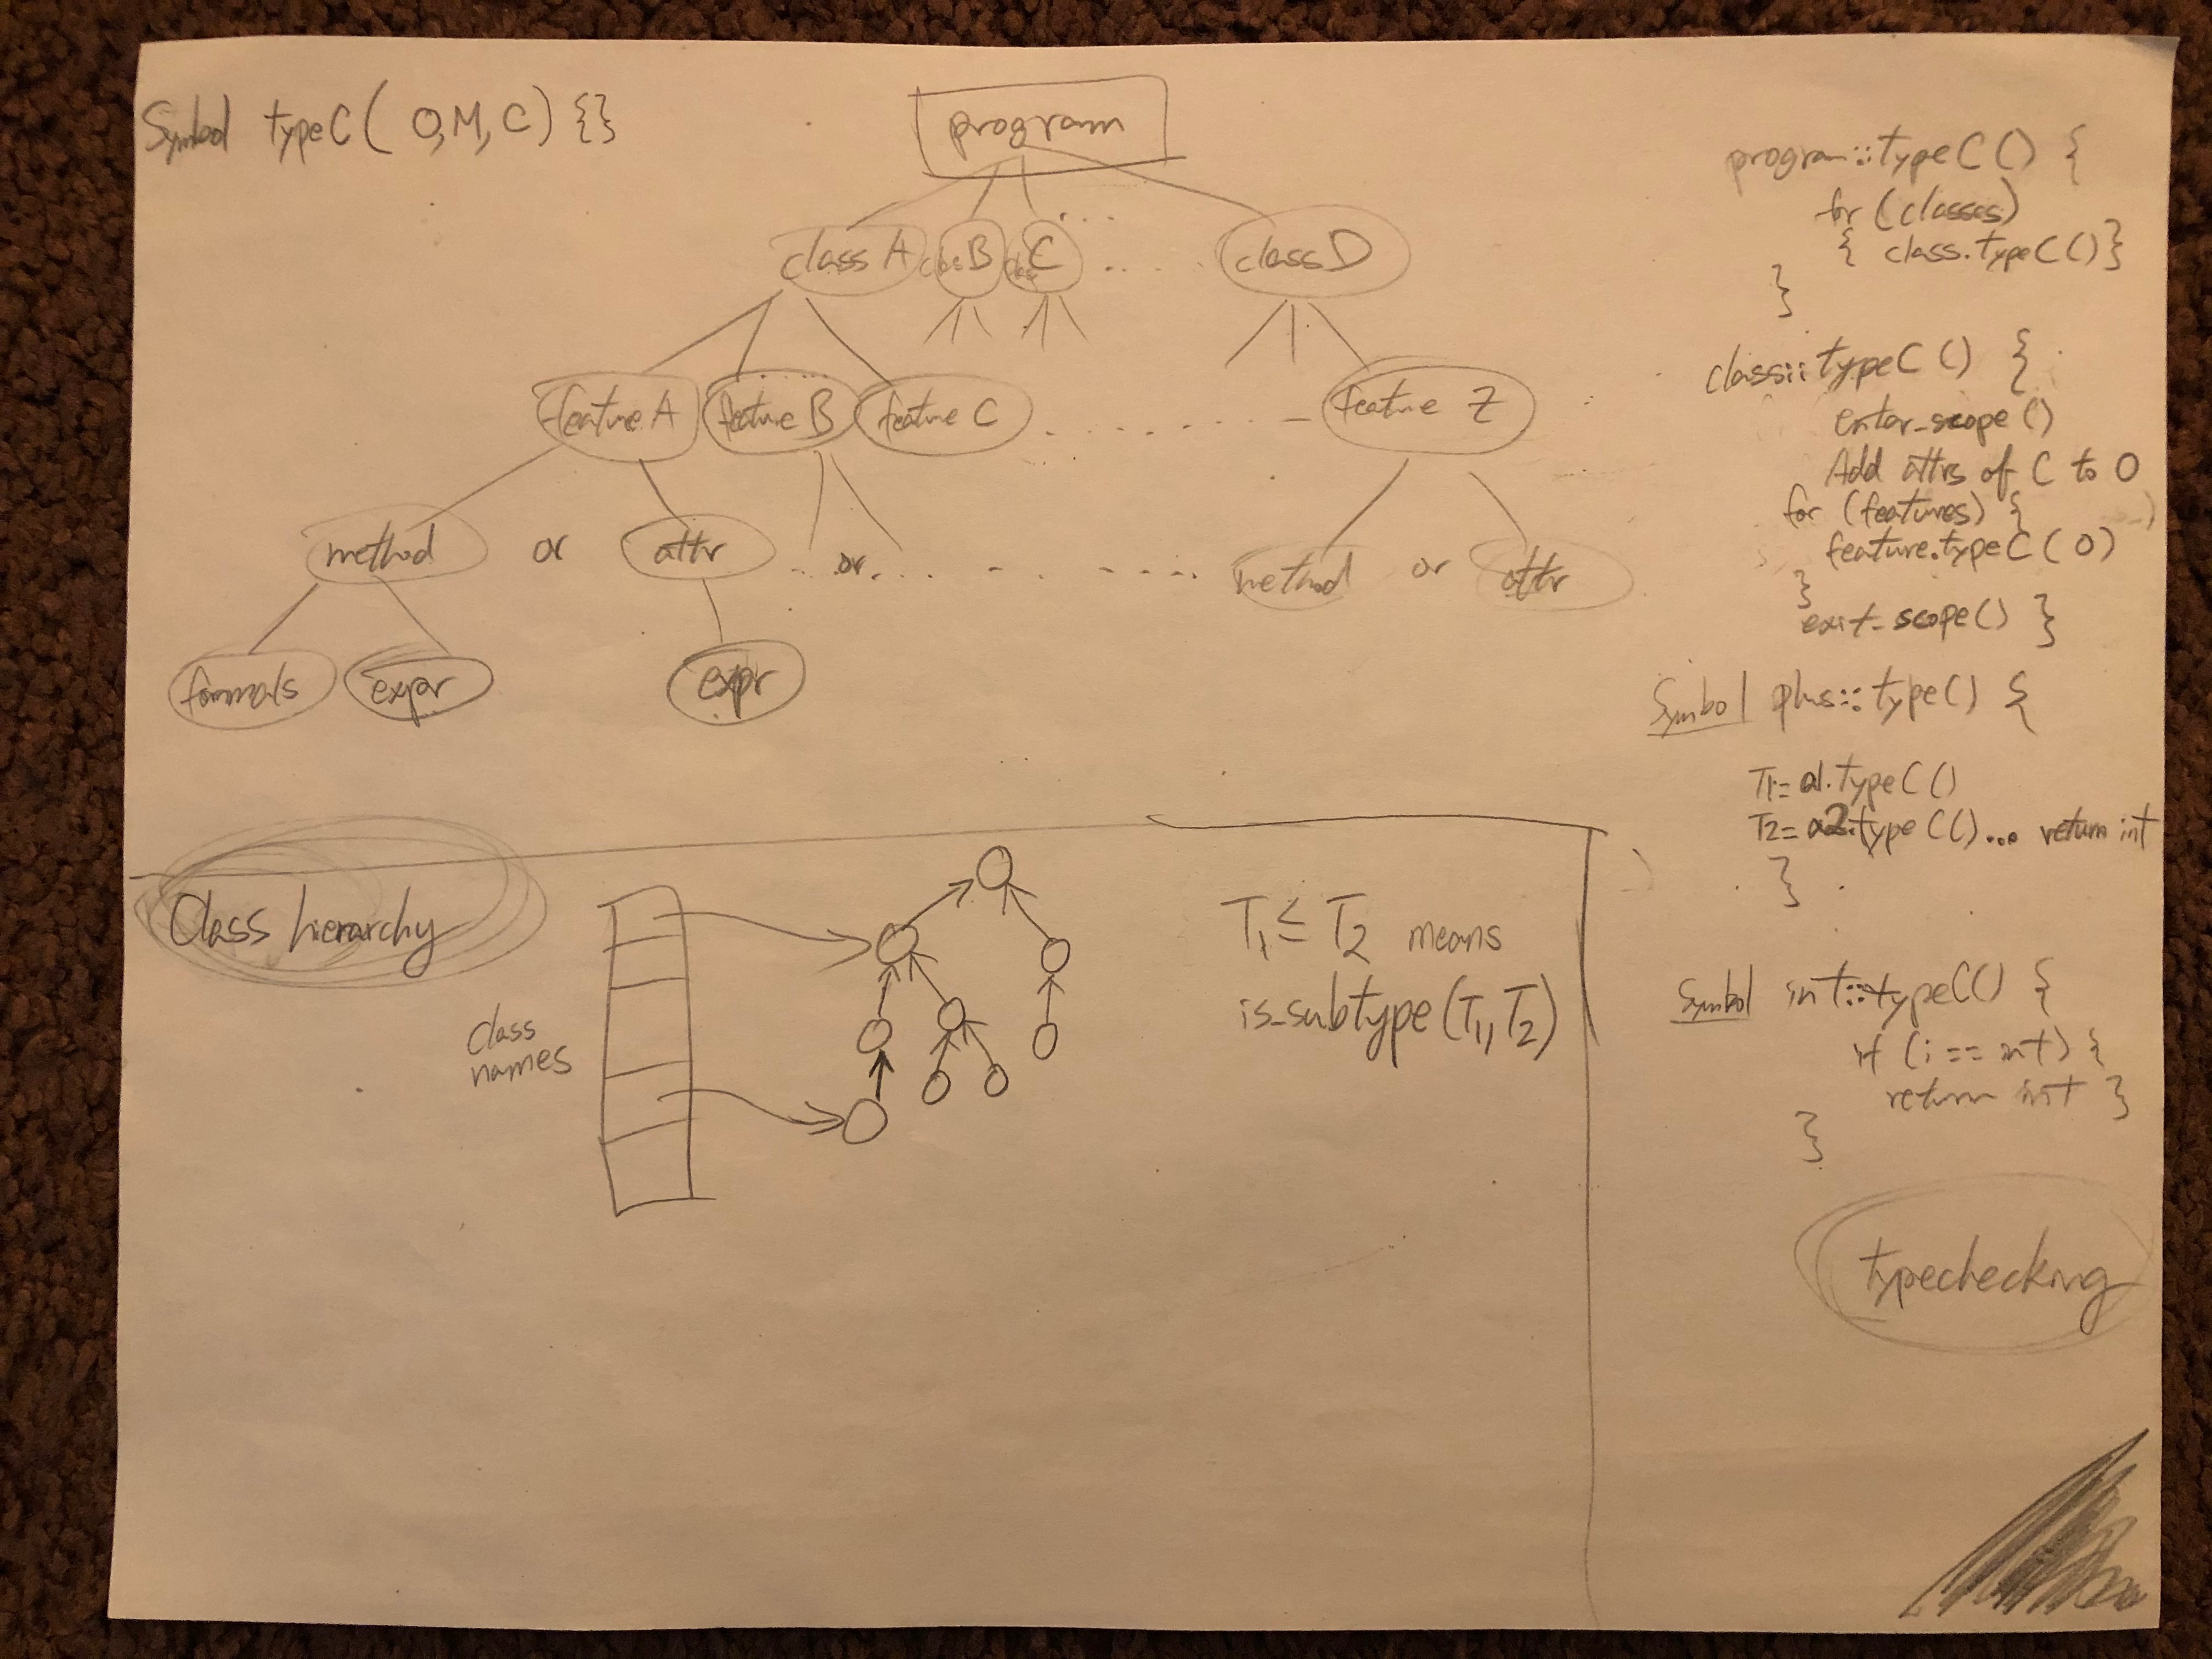 Symbol typeC( O,M,C) {}
program
class A class B class C ... .... class D
feature A feature B feature C ....... feature Z
method or attr .. or... - . - .... method or attr
formals expr expr
Class hierarchy
class
names
T1 ≤ T2 means
is_subtype(T1, T2)
program::typeC() {
for (classes)
{ class.typeC()}
}
class::typeC() {
enter_scope()
Add attrs of C to O
for (features) {
feature.typeC(O)
}
exit_scope() }
Symbol plus::type() {
T1= a1.typeC()
T2= a2.typeC()... return int
}
Symbol int::typeC() {
if (i == int) {
return int }
}
typechecking